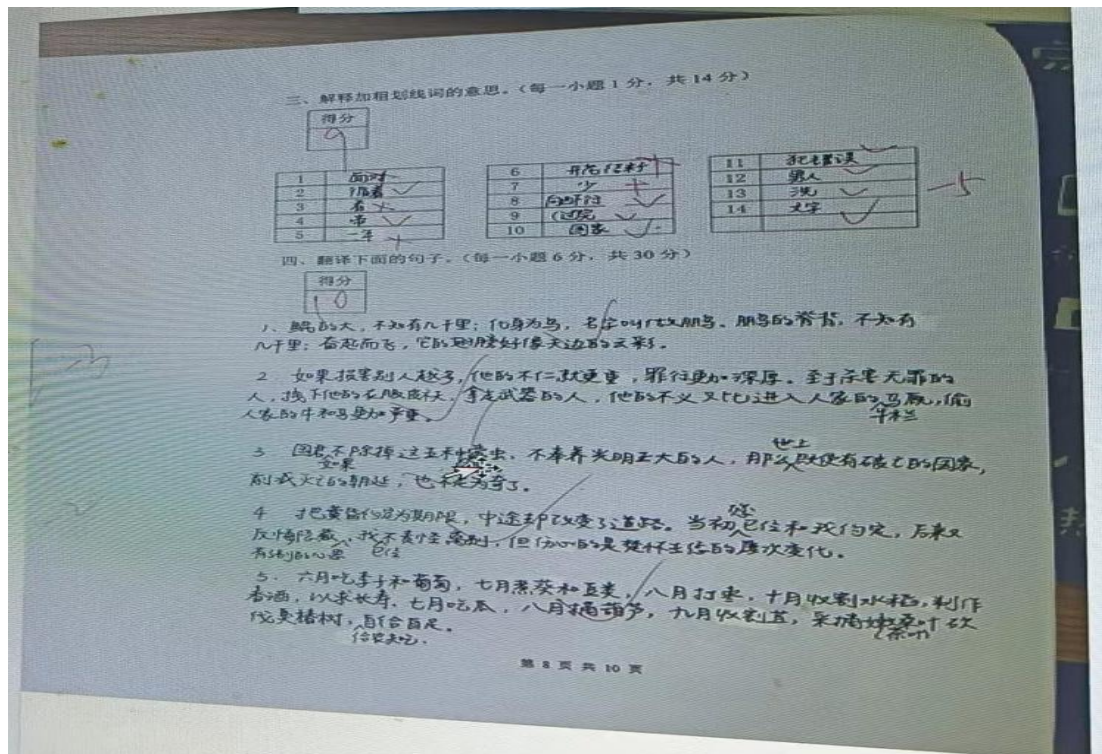 三、解释加粗划线词的意思。（每一小题 1 分，共 14 分）
得分
9
1 面对
2
3 看
4 带
5 二年
6 开花结籽
7 少
8
9
10 国家
11 犯错误
12 男人
13 洗
14 文字
-5
四、翻译下面的句子。（每一小题 6 分，共 30 分）
得分
10
1、鲲的大，不知有几千里；化身为鸟，名字叫做鹏鸟。鹏鸟的脊背，不知有
几千里；奋起而飞，它的翅膀好像天边的云彩。
2 如果损害别人越多，他的不仁就更重，罪行更加深厚。至于杀害无罪的
人，拽下他的衣服皮袄，拿走武器的人，他的不义又比进入人家的马厩，偷
牛栏
人家的牛和马更加严重。
世上
3 国君不除掉这五种蠹虫，不奉养光明正大的人，那么即使有破亡的国家，
如果
削减灭亡的朝廷，也不足为奇了。
4 把黄昏约定为期限，中途却改变了道路。当初已经和我约定，后来又
反悔隐藏，我不责怪离别，但伤心的是楚怀王多的屡次变化。
有别的心思
5、六月吃李子和葡萄，七月煮葵和豆类，八月打枣，十月收割水稻，制作
香酒，以求长寿，七月吃瓜，八月摘葫芦，九月收割苴，采摘嫩桑叶砍
(茶叶)
伐臭椿树，自给自足。
给农夫吃.
第 8 页 共 10 页